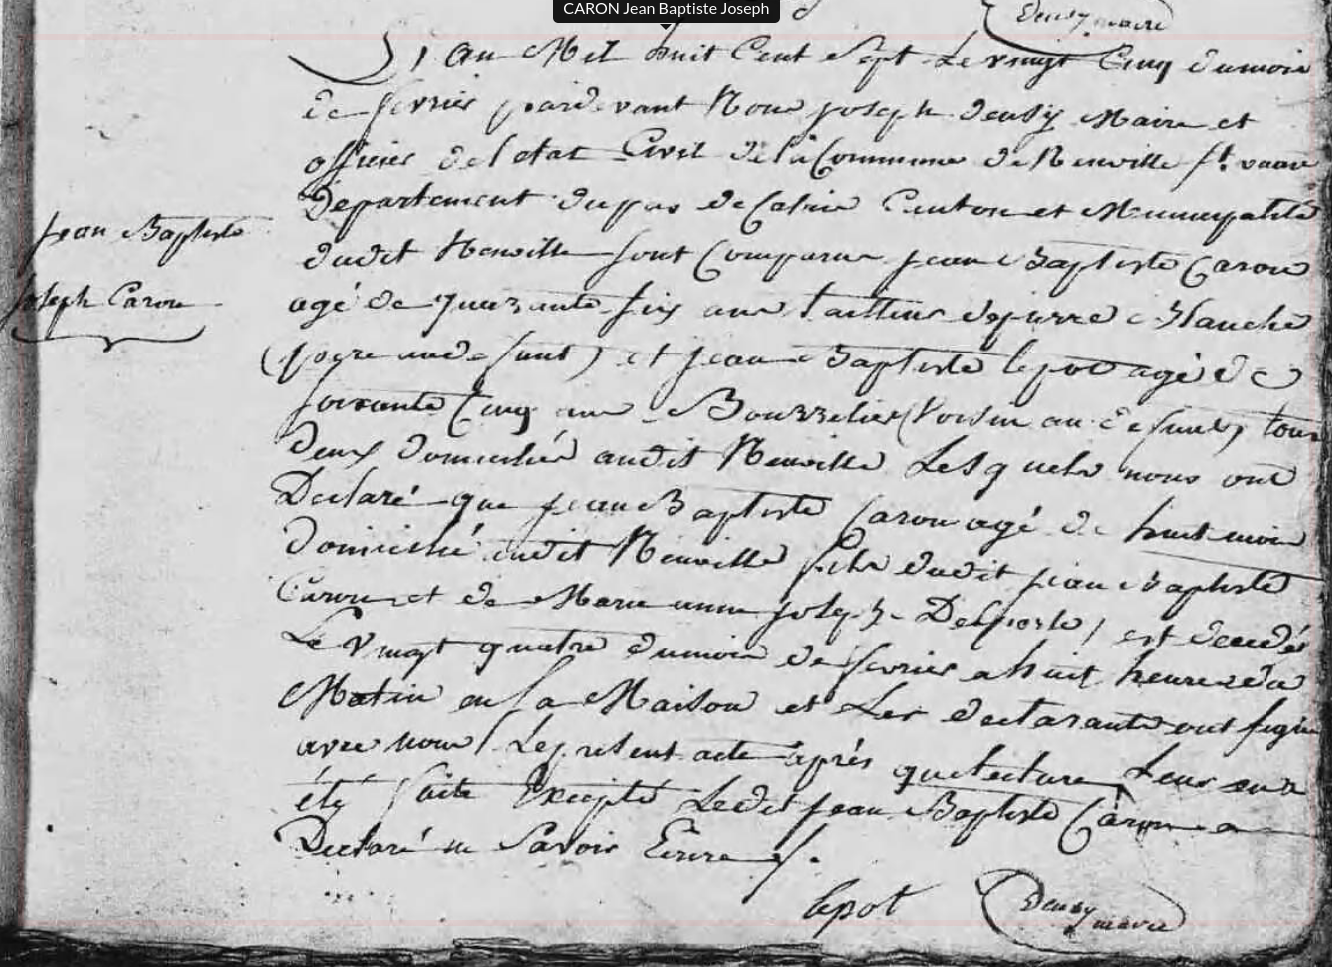 CARON Jean Baptiste Joseph
Deusy maire
L'an Mil huit Cent Sept Le vingt Cinq dumois
de fevrier pardevant Nous joseph deusy Maire et
officier de l'etat Civil de la Commune de Neuville St. vaast
Departement dupas de Calais Canton et Municipalité
dudit Neuville sont Comparus jean Baptiste Caron
agé de quarante six ans tailleur de pierre Blanche
(pere au defunt) et jean Baptiste lepot agé de
soixante Cinq ans Bourrelier (Voisin au defunt) tous
deux domiciliés audit Neuville Lesquels nous ont
Declaré que jean Baptiste Caron agé de huit mois
domicilié audit Neuville fils dudit jean Baptiste
Caron et de Marie anne josph Delporte, est decedé
Le vingt quatre dumois de fevrier a huit heures du
Matin en sa Maison et Les declarants ont signé
avec nous Le present acte après que lecture Leur en a
été faite Excepté Ledit jean Baptiste Caron a
Declaré ne Savoir Ecrire
lepot
Deusy maire
Jean Baptiste
Joseph Caron